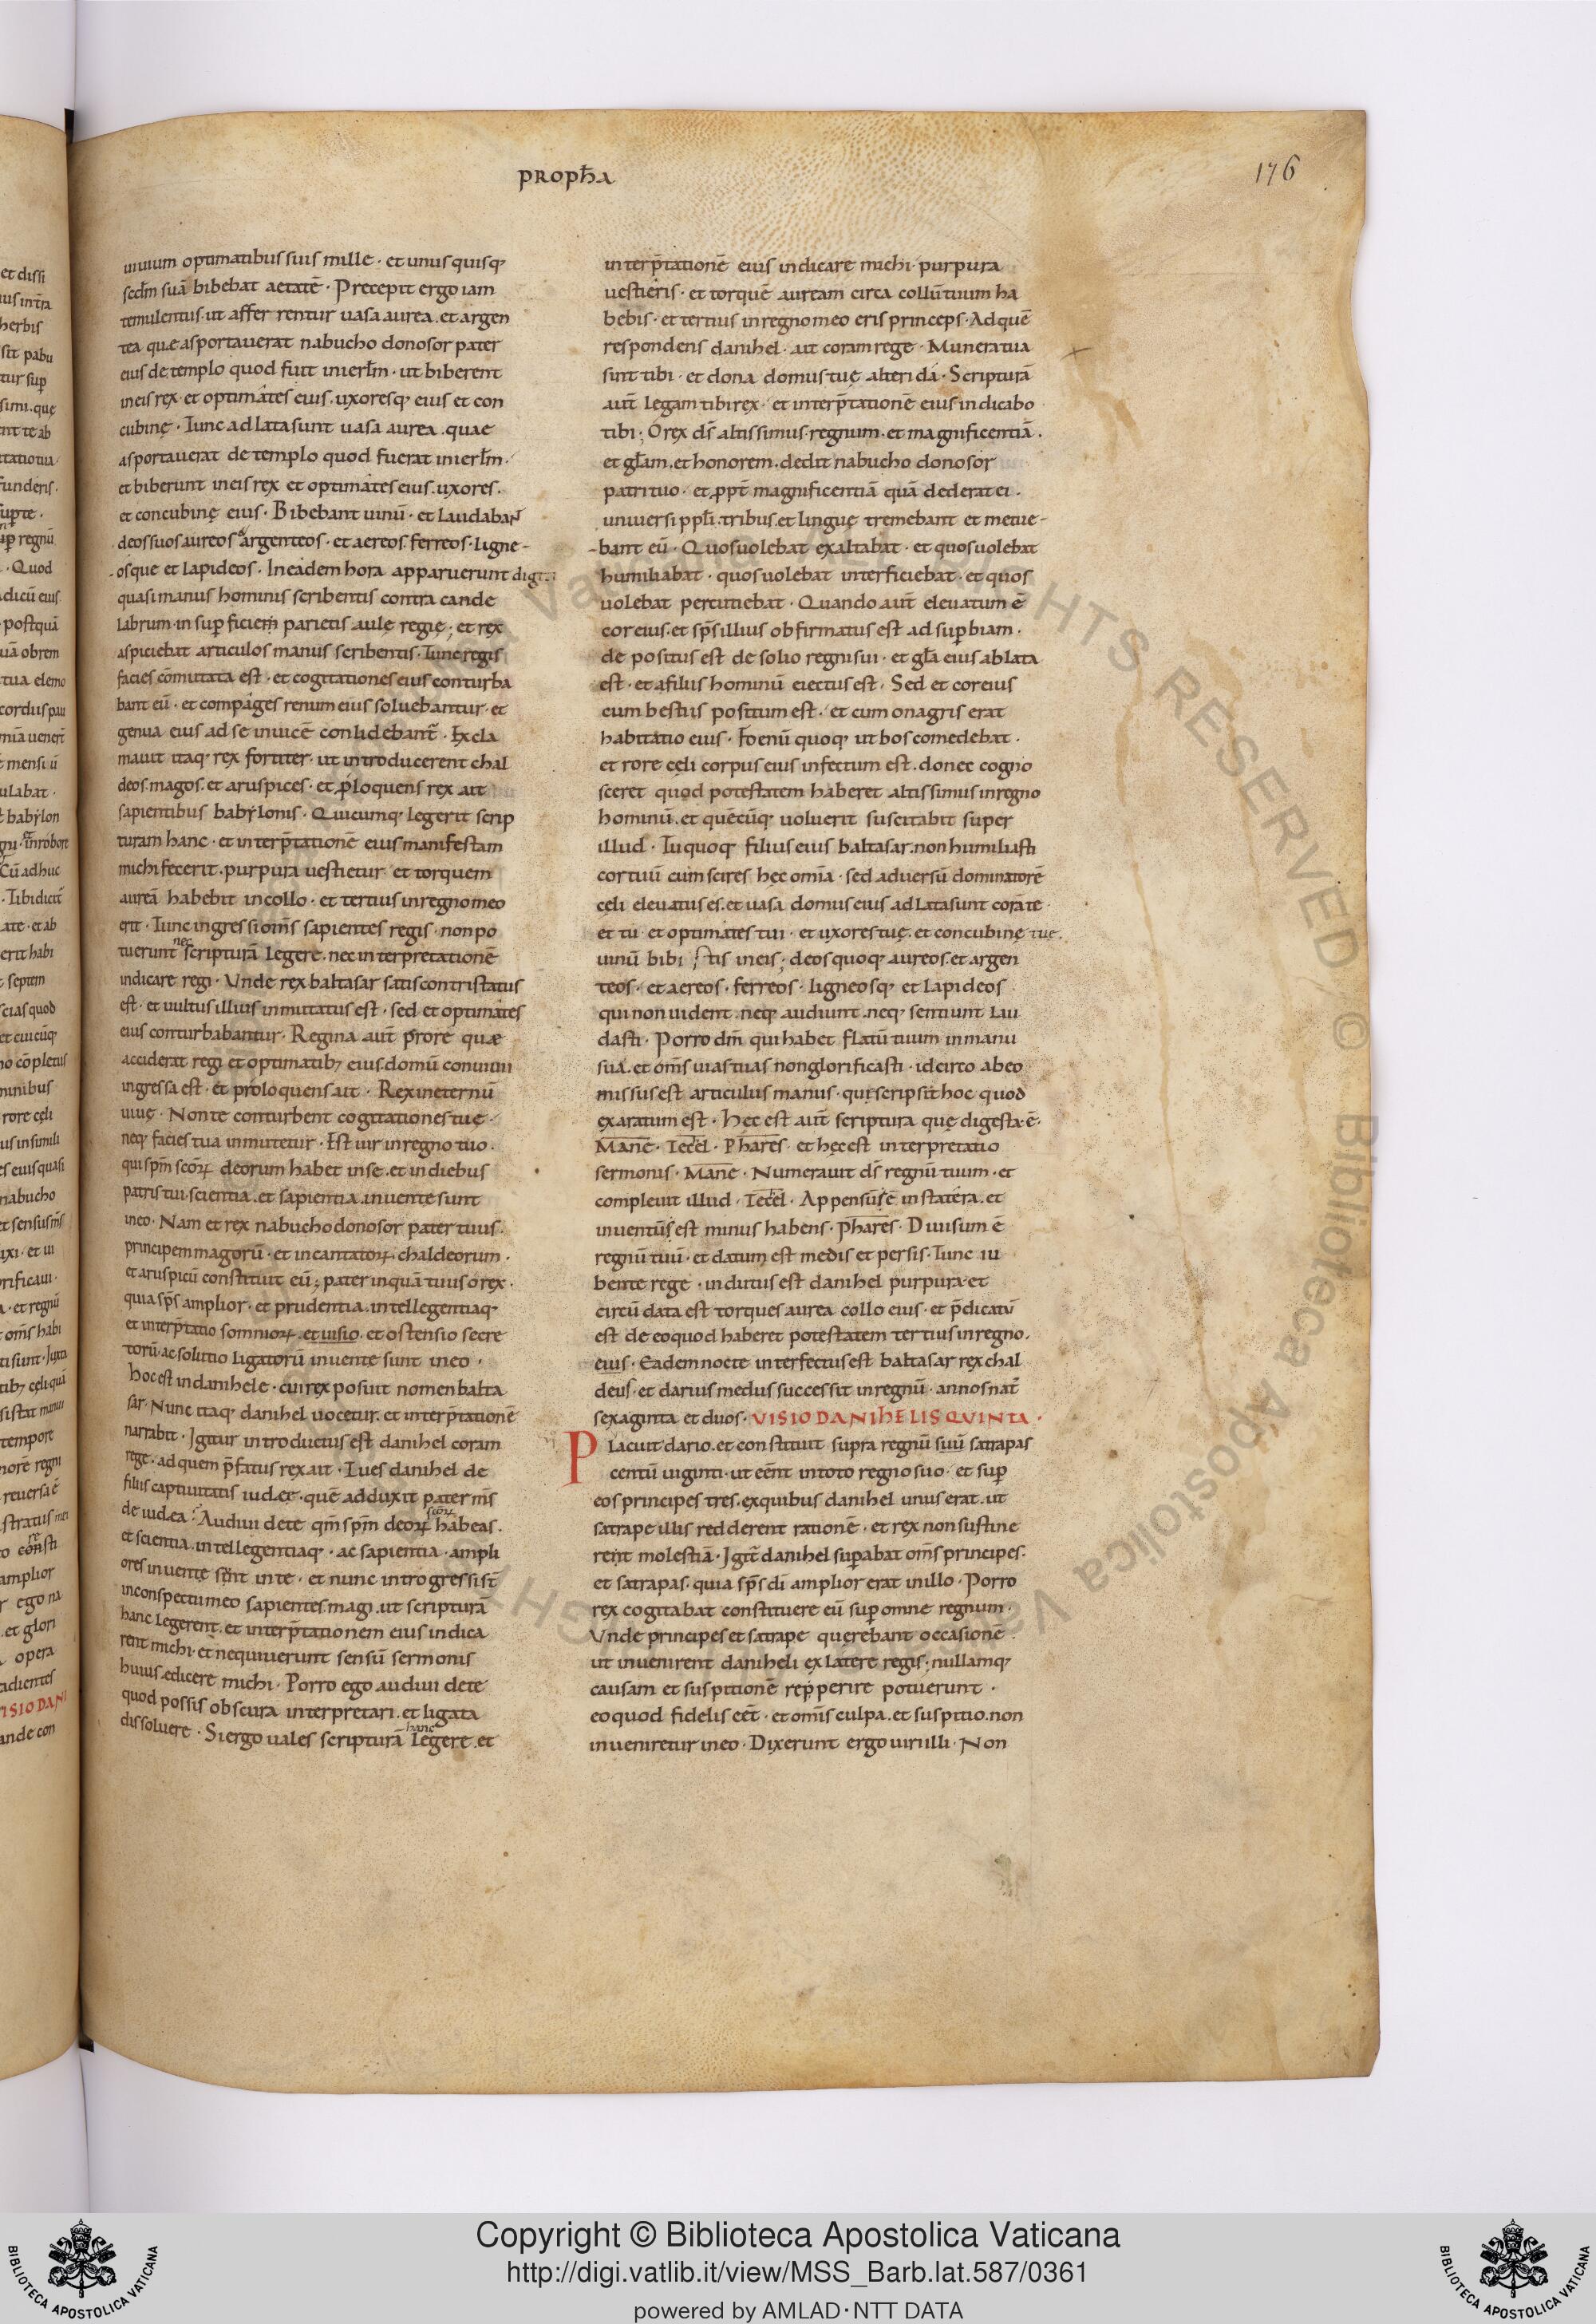 PROPħA
176
uiuium optimatibus suis mille · et unus quisq;
sedm̄ suā bibebat aetatē · Precepit ergo iam
temulentus · ut affer rentur uasa aurea · et argen
tea quæ asportauerat nabucho donosor pater
eius de templo quod fuit in ierłm · ut biberent
in eis rex · et optimates eius · uxoresq; eius et con
cubinę · Tunc ad lata sunt uasa aurea · quae
asportauerat de templo quod fuerat in ierłm ·
et biberunt in eis rex et optimates eius · uxores ·
et concubinę eius · Bibebant uinū · et laudabaɴt
deos suos aureos & argenteos · et aereos · ferreos · ligne-
-osque et lapideos · In eadem hora apparuerunt digiti
quasi manus hominis scribentis contra cande
labrum · in sup̄ ficiem parietis aulę regię ; et rex
aspiciebat articulos manus scribentis · Tunc regis
facies cōmutata est · et cogitationes eius conturba
bant eū · et compages renum eius soluebantur · et
genua eius ad se inuicē conlidebant̄ · Excla
mauit itaq; rex fortiter · ut introducerent chal
deos · magos · et aruspices · et p̄loquens rex ait
sapientibus babylonis · Quicumq; legerit scrip
turam hanc · et interp̄tationē eius manifestam
michi fecerit · purpura uestietur et torquem
aureā habebit in collo · et tertius in regno meo
erit · Tunc ingressi om̄s sapientes regis · non po
tuerunt nec scripturā legere · nec interpretationē
indicare regi · Vnde rex baltasar satis contristatus
est · et uultus illius inmutatus est · sed et optimates
eius conturbabantur · Regina aūt p̄ro re quæ
acciderat regi et optimatib; eius · domū conuiuii
ingressa est · et proloquens ait · Rex in eternū
uiue · Non te conturbent cogitationes tuę ·
neq; facies tua inmutetur · Est uir in regno tuo ·
qui spm̄ scōꝝ deorum habet in se · et in diebus
patris tui · scientia · et sapientia · inuente sunt
in eo · Nam et rex nabuchodonosor pater tuus ·
principem magorū · et incantatoꝝ · chaldeorum ·
et aruspicū constituit eū ; pater inquā tuus o rex ·
quia sp̄s amplior · et prudentia · intellegentiaq;
et interp̄tatio somnioꝝ · et uisio · et ostensio secre
torū · ac solutio ligatorū inuente sunt in eo ·
hoc est in danihele · cui rex posuit nomen balta
sar · Nunc itaq; danihel uocetur · et interp̄tationē
narrabit · Igitur introductus est danihel coram
rege · ad quem p̄fatus rex ait · Tu es danihel de
filiis captiuitatis iudęę · quē adduxit pater m̄s
de iudęa ? Audiui de te qm̄ spm̄ deoꝝ scōꝝ habeas ·
et scientia · intellegentiaq; · ac sapientia · ampli
ores inuentę sunt in te · et nunc introgressi s̄t
in conspectu meo sapientes · magi · ut scripturā
hanc legerent · et interp̄tationem eius indica
rent michi · et nequiuerunt sensū sermonis
huius · edicere michi · Porro ego audiui de te
quod possis obscura interpretari · et ligata
dissoluere · Si ergo uales scripturā hanc legere · et
interp̄tationē eius indicare michi · purpura
uestieris · et torquē auream circa collū tuum ha
bebis · et tertius in regno meo eris princeps · Ad quē
respondens danihel · ait coram rege · Munera tua
sint tibi · et dona domus tuę alteri da · Scripturā
aūt legam tibi rex · et interp̄tationē eius indicabo
tibi ; O rex d̄s altissimus · regnum · et magnificentiā ·
et głam · et honorem · dedit nabucho donosor
patri tuo · et ppt̄ magnificentiā quā dederat ei ·
uniuersi ppłi · tribus · et linguę tremebant et metue-
-bant eū · Quos uolebat exaltabat · et quos uolebat
humiliabat · quos uolebat interficiebat · et quos
uolebat percutiebat · Quando aūt eleuatum ē
cor eius · et sp̄s illius obfirmatus est ad sup̄biam ·
de positus est de solio regni sui · et gła eius ablata
est · et a filiis hominū eiectus est · Sed et cor eius
cum bestiis positum est · et cum onagris erat
habitatio eius · Foenū quoq; ut bos comedebat ·
et rore cęli corpus eius infectum est · donec cogno
sceret quod potestatem haberet altissimus in regno
hominū · et quēcūq; uoluerit suscitabit super
illud · Tu quoq; filius eius baltasar · non humiliasti
cor tuū cum scires hec omīa · sed aduersū dominatorē
cęli eleuatus es · et uasa domus eius ad lata sunt corā te ·
et tu · et optimates tui · et uxores tuę · et concubinę tuę ·
uinū bibi stis in eis ; deos quoq; aureos · et argen
teos · et aereos · ferreos · ligneosq; et lapideos ·
qui non uident · neq; audiunt · neq; sentiunt lau
dasti · Porro dm̄ qui habet flatū tuum in manu
sua · et om̄s uias tuas non glorificasti · idcirco ab eo
missus est articulus manus · qui scripsit hoc quod
exaratum est · Hęc est aūt scriptura quę digesta · ē ·
Mane · Tecel · Phares · et hęc est interpretatio
sermonis · Mane · Numerauit d̄s regnū tuum · et
compleuit illud · Tecel · Appensus ē in statera · et
inuentus est minus habens · Phares · Diuisum ē
regnū tuū · et datum est medis et persis · Tunc iu
bente rege · indutus est danihel purpura · et
circū data est torques aurea collo eius · et p̄dicatū
est de eo quod haberet potestatem tertius in regno ·
eius · Eadem nocte interfectus est baltasar rex chal
deus · et darius medus successit in regnū · annos nat̄
sexaginta et duos · VISIO DANIHELIS QVINTA ·
Placuit dario · et constituit supra regnū suū satrapas
centū uiginti · ut eēnt in toto regno suo · et sup̄
eos principes tres · ex quibus danihel unus erat · ut
satrape illis redderent rationē · et rex non sustine
rent molestiā · Igit̄ danihel sup̄abat om̄s principes ·
et satrapas · quia sp̄s dī amplior erat in illo · Porro
rex cogitabat constituere eū sup̄ omne regnum ·
Vnde principes et satrape querebant occasionē ·
ut inuenirent daniheli ex latere regis · nullamq;
causam et suspitionē repperire potuerunt ·
eo quod fidelis eēt · et om̄is culpa · et suspitio · non
inueniretur in eo · Dixerunt ergo uiri illi · Non
Copyright © Biblioteca Apostolica Vaticana
http://digi.vatlib.it/view/MSS_Barb.lat.587/0361
powered by AMLAD·NTT DATA